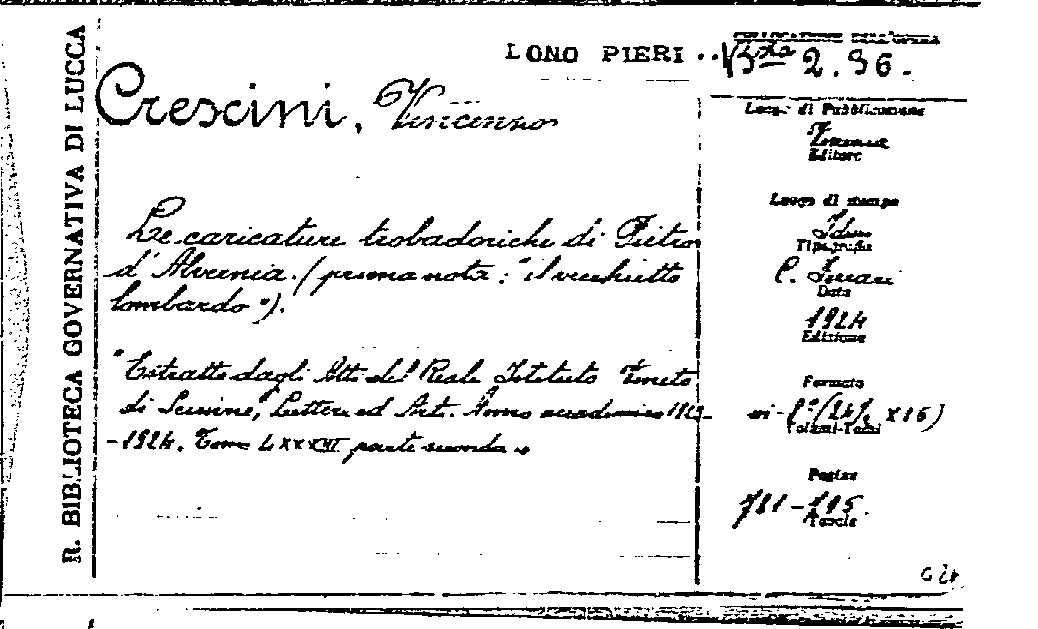 R. BIBLIOTECA GOVERNATIVA DI LUCCA
LONO PIERI
COLLOCAZIONE DELL'OPERA
2.96.
Crescini, Vincenzo
Le caricature trobadoriche di Pietro
d'Alvernia. (prima nota: "il vecchietto
lombardo").
"Estratto dagli Atti del Reale Istituto Veneto
di Scienze, Lettere ed Arti. Anno accademico 1923-
-1924. Tomo LXXXIII parte seconda"
Luogo di Pubblicazione
Venezia
Editore
Luogo di stampa
Idem
Tipografia
C. Ferrari
Data
1924
Edizione
Formato
in-8° (24½ x16)
Volumi-Tomi
Pagine
Tavole